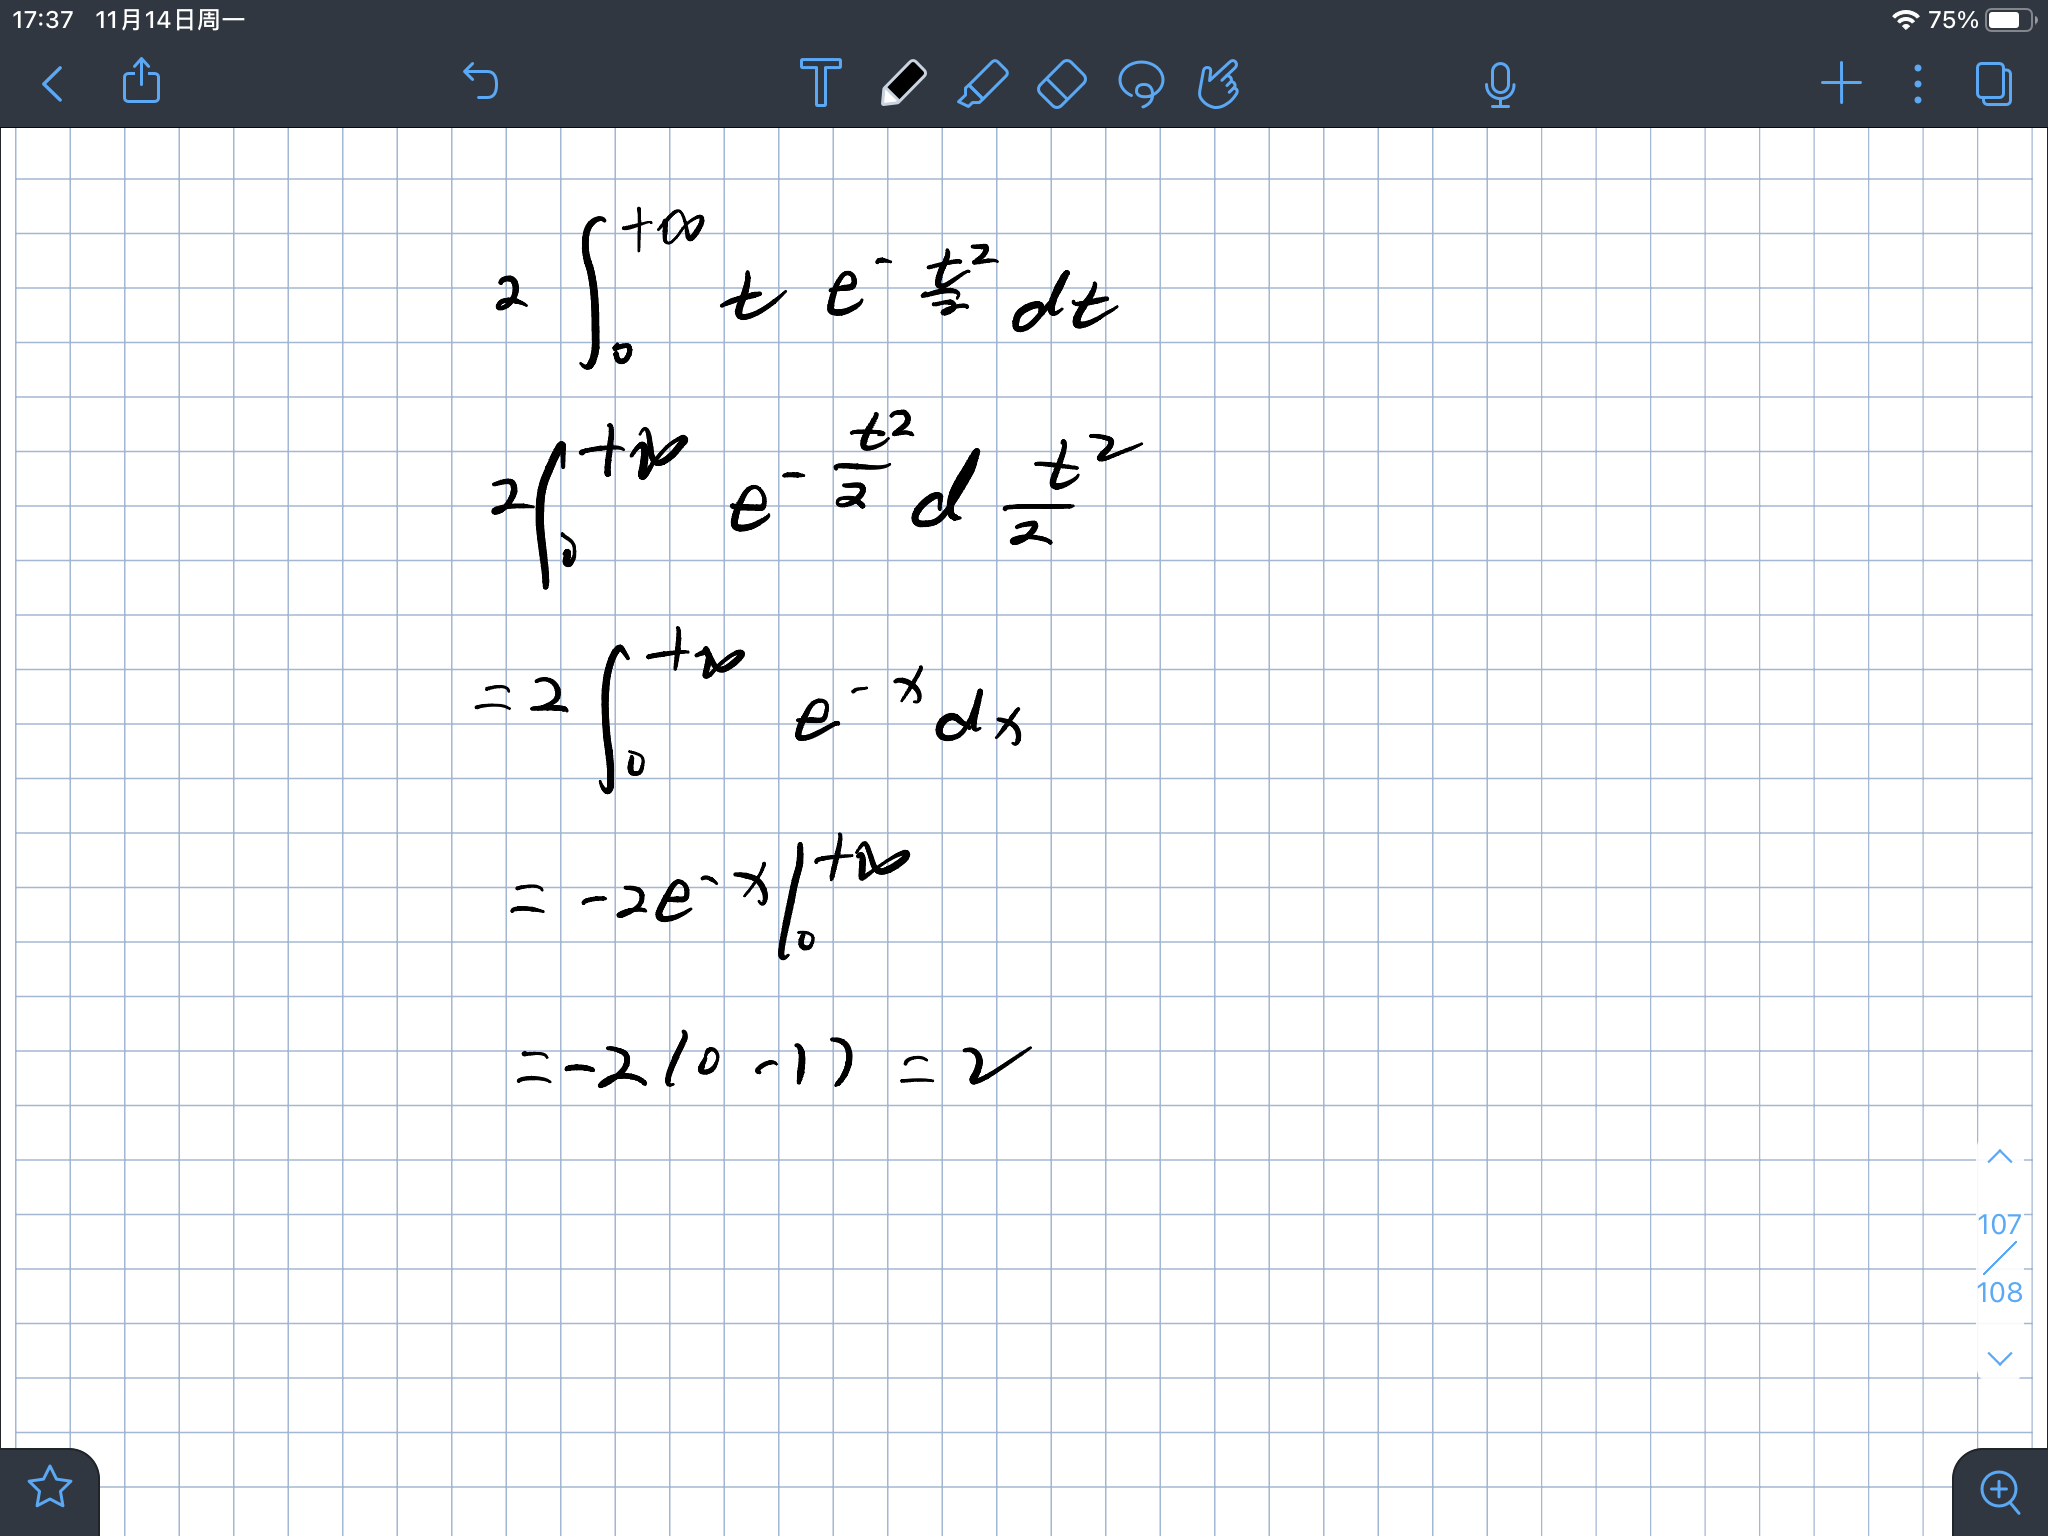 17:37 11月14日周一 75%
T
2 ∫₀^{+∞} t e^{-t²/2} dt
2 ∫₀^{+∞} e^{-t²/2} d t²/2
= 2 ∫₀^{+∞} e^{-x} dx
= -2e^{-x} |₀^{+∞}
= -2(0 - 1) = 2
107
/
108